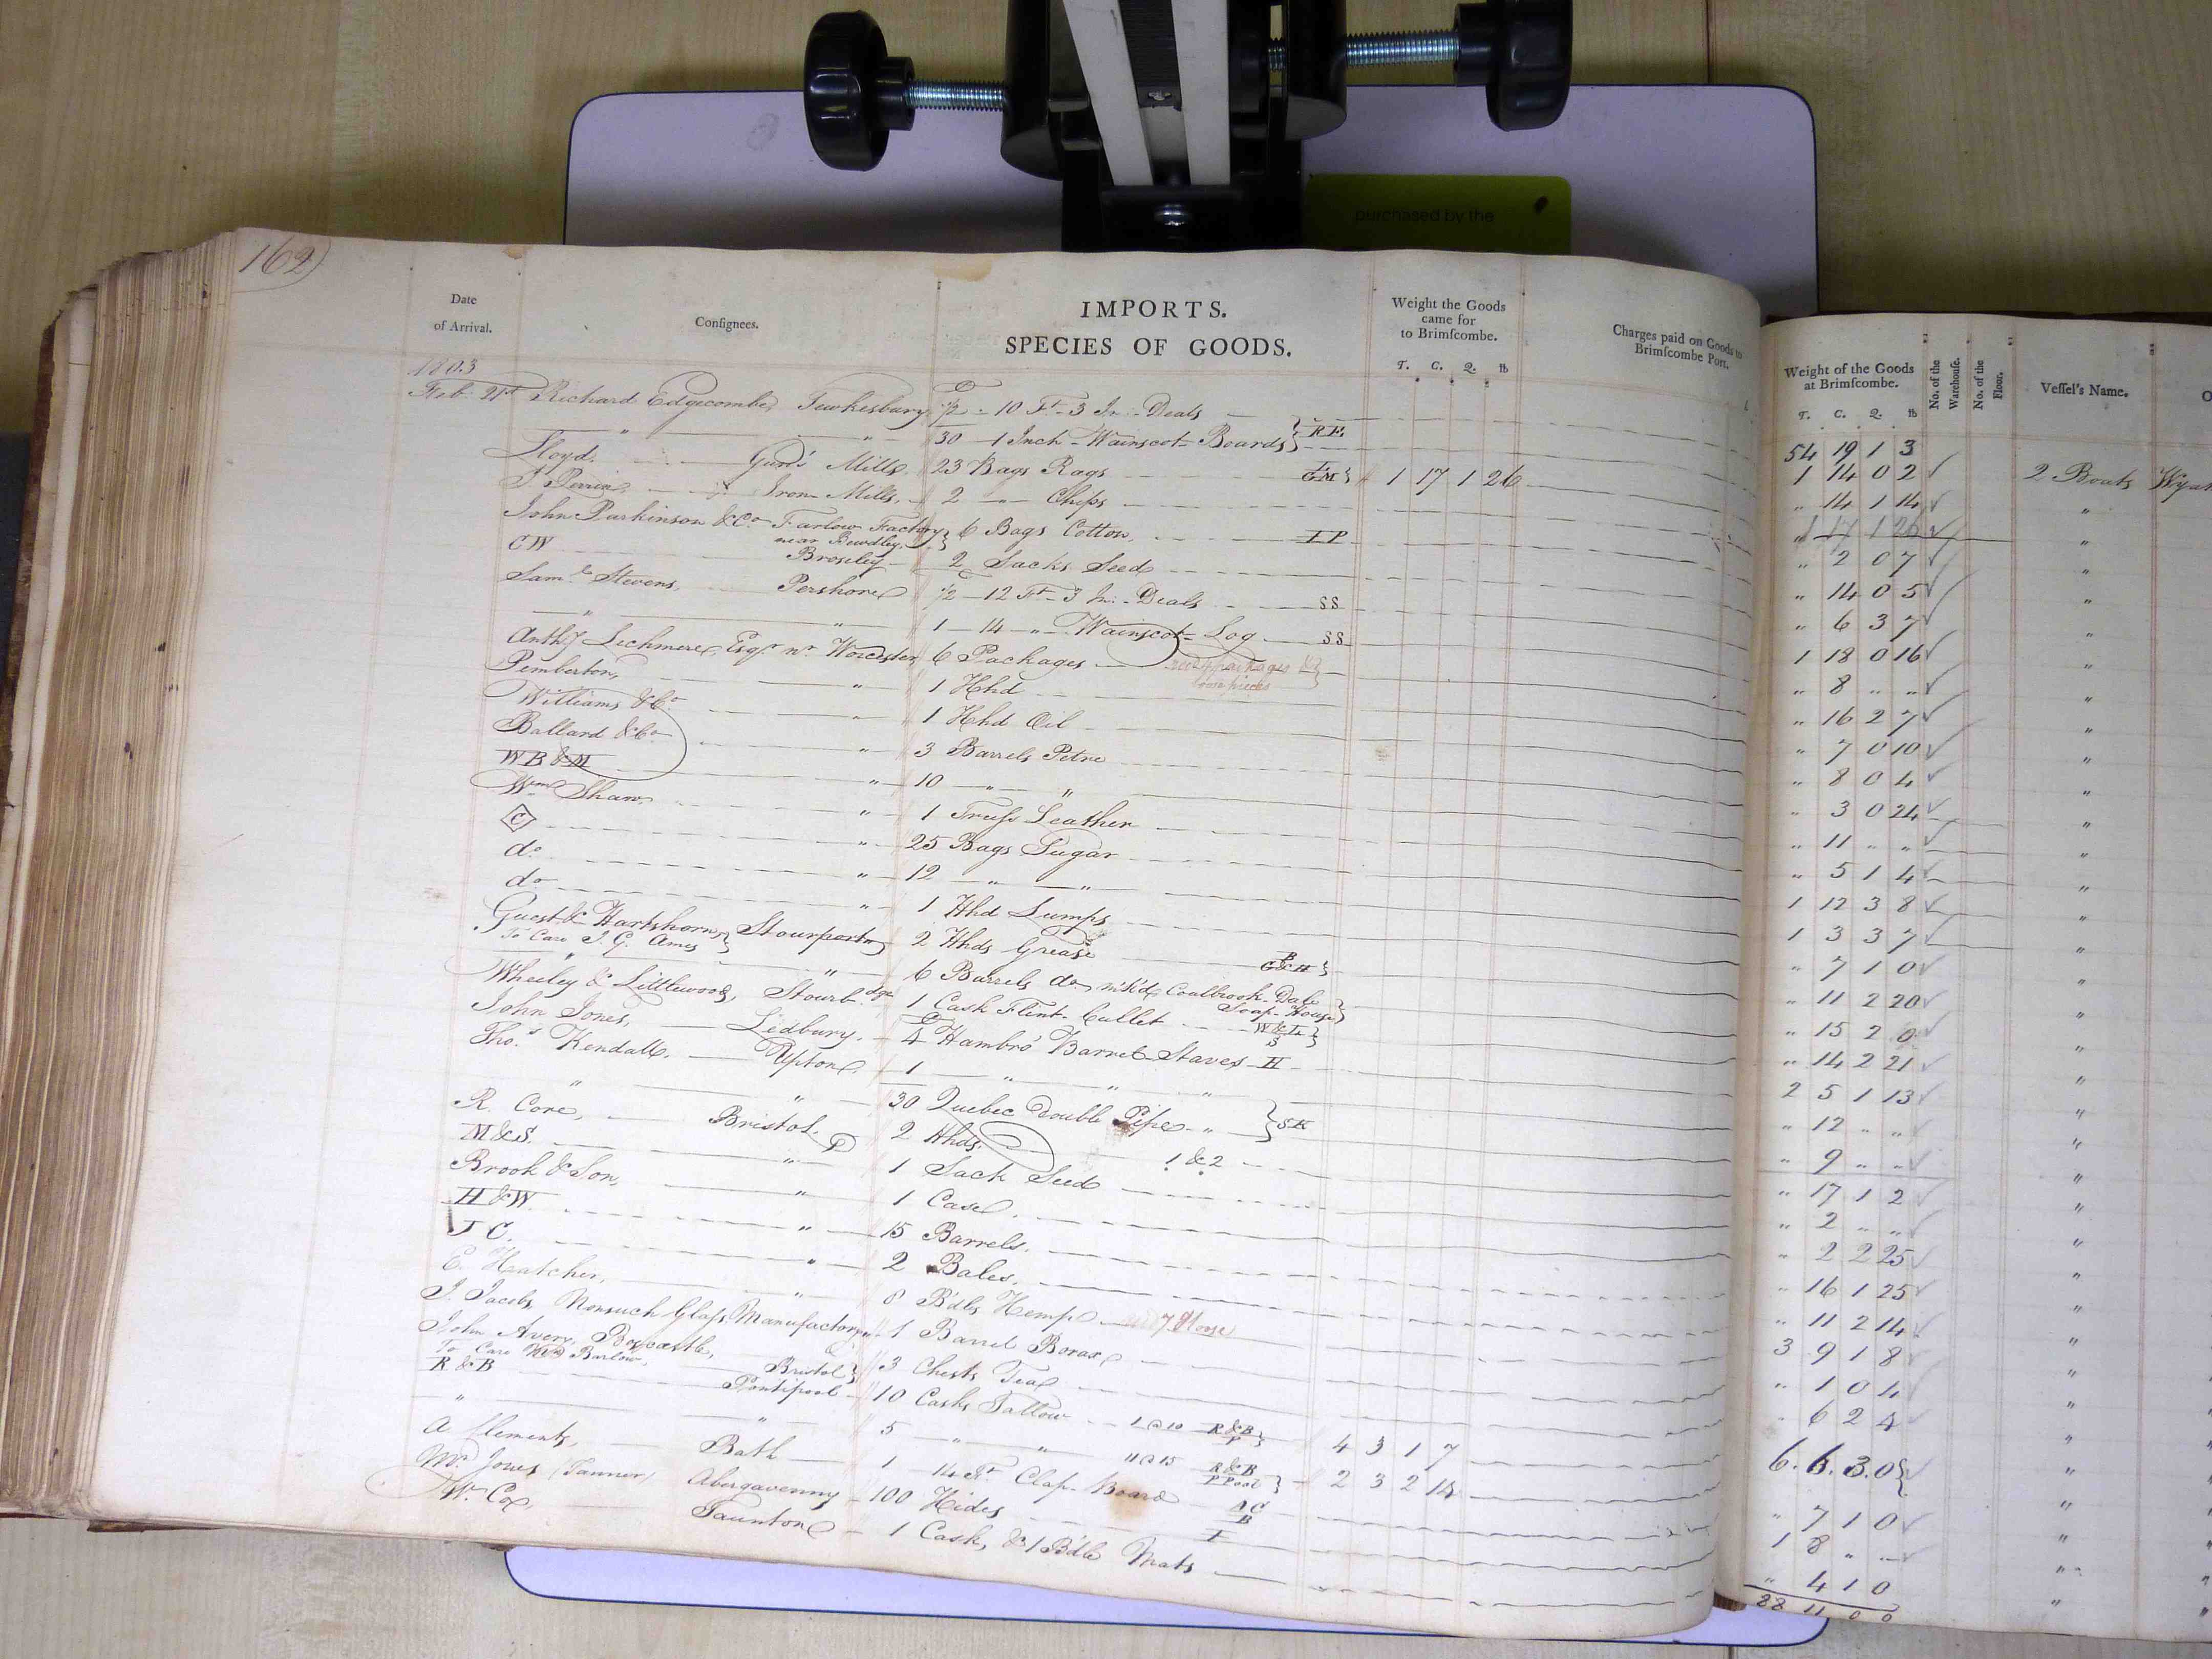 purchased by the
162
Date of Arrival.
Consignees.
IMPORTS.
SPECIES OF GOODS.
Weight the Goods came for to Brimscombe.
T. C. Q. lb
Charges paid on Goods to Brimscombe Port.
Weight of the Goods at Brimscombe.
T. C. Q. lb
No. of the Warehouse.
No. of the Floor.
Vessel's Name.
1803
54 19 1 3
Feb. 21st Richard Edgecombe, Tewkesbury 1/2 - 10 Ft - 3 In - Deals 1 14 0 2 2 Boats
" " 30 - 1 Inch - Wainscot - Boards } R E. " 14 1 14 "
Lloyd. Gun's Mills 23 Bags Rags GM } 1 17 1 26 1 17 1 26 "
J. Perrin, Iron Mills, 2 " Chips " 2 0 7 "
John Parkinson & Co. Farlow Factory near Bewdley } 6 Bags Cotton, I P " 14 0 5 "
CW Broseley 2 Sacks Seed " 6 3 7 "
Saml. Stevens, Pershore 1/2 - 12 Ft - 3 In - Deals S S 1 18 0 16 "
" " 1 - 14 - " Wainscot - Log S S " 8 " " "
Anthy. Lechmere, Esqr. nr. Worcester 6 Packages " 16 2 7 "
packages &
pieces
Pemberton, " 1 Hhd " 7 0 10 "
Williams & Co. " 1 Hhd Oil " 8 0 4 "
Ballard & Co. " 3 Barrels Petre " 3 0 24 "
WB & M " 10 " " " 11 " " "
Wm. Shaw. " 1 Truss Leather " 5 1 4 "
C " 25 Bags Sugar 1 12 3 8 "
do. " 12 " " 1 3 3 7 "
do. " 1 Hhd Lumps " 7 1 0 "
Guest & Hartshorn, } Stourport 2 Hhds Grease B G&H } " 11 2 20 "
To Care J. G. Ames
" " 6 Barrels do. m'k'd Coalbrook-Dale Soap-House } " 15 2 0 "
Wheeley & Littlewood, Stourb.dge 1 Cask Flint - Cullet W&L S } " 14 2 21 "
John Jones, Ledbury. 4 Hambro' Barrel Staves H 2 5 1 13 "
Thos. Kendall. Upton, 1 " " " " 12 " " "
" " 30 Quebec Double Pipe " } S K " 9 " " "
R. Core, Bristol. 2 Hhds. 1 & 2 " 17 1 2 "
M & S. " 1 Sack Seed " 2 " " "
Brook & Son, " 1 Case. " 2 2 25 "
H & W. " 15 Barrels. " 16 1 25 "
J C. " 2 Bales. " 11 2 14 "
E. Hatcher, " 8 B'dls Hemp 3 9 1 8 "
J. Jacobs, Nonsuch Glass Manufactory 1 Barrel Borax " 1 0 4 "
John Avery, Boscastle, 3 Chests Tea " 6 2 4 "
To Care Wm. Barlow, Bristol }
R & B Pontipool 10 Casks Tallow 1 @ 10 R&B P } 4 3 1 7 6. 6. 3. 0 } "
" " 5 " " 11 @ 15 R&B P Pool } 2 3 2 14
A Clements, Bath 1 - 14 Ft Clap - Board AC B " 7 1 0 "
Mr. Jones (Tanner) Abergavenny 100 Hides I 1 8 " " "
W. Cox, Taunton 1 Cask, & 1 B'dle Mats " 4 1 0 "
88 11 0 0